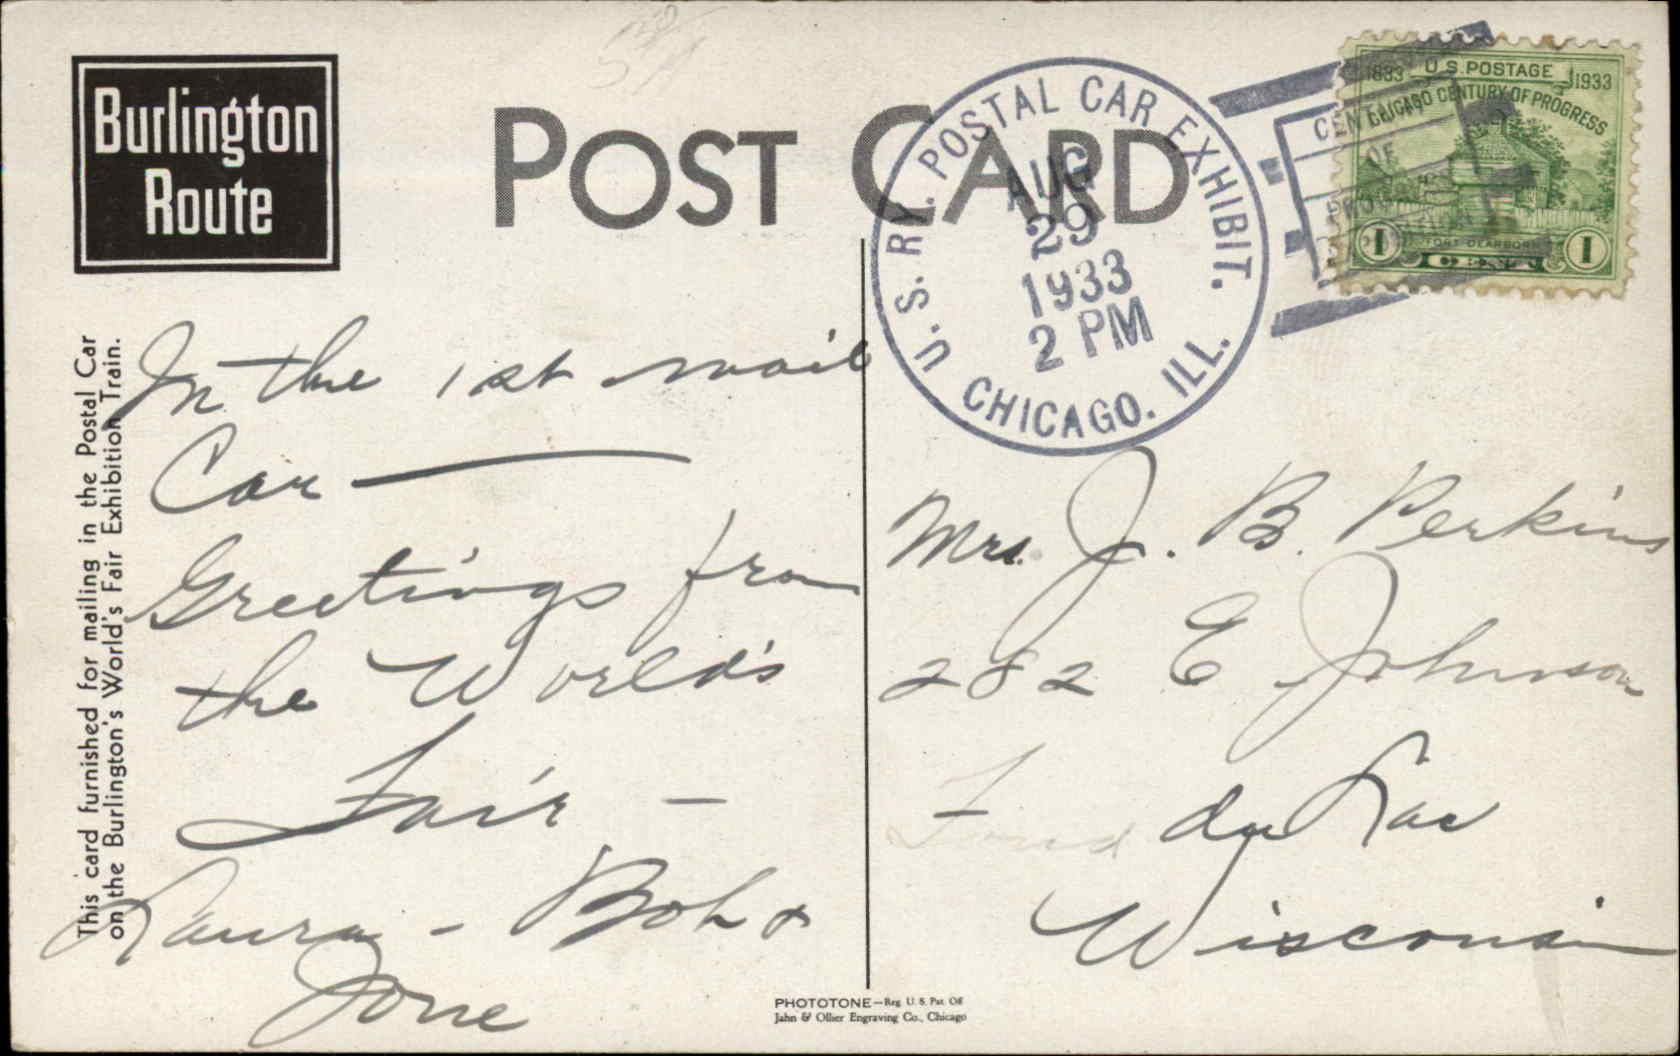 Burlington
Route
POST CARD
U.S. RY. POSTAL CAR EXHIBIT.
AUG
29
1933
2 PM
CHICAGO. ILL.
1833 U.S. POSTAGE 1933
CHICAGO CENTURY OF PROGRESS
CENTURY
OF
PROGRESS
FORT DEARBORN
1 1
This card furnished for mailing in the Postal Car
on the Burlington's World's Fair Exhibition Train.
In the 1st mail
Car —
Greetings from
the World's
Fair —
Laura - Bob &
Mrs. J. B. Perkins
282 E Johnson
Fond du Lac
Wisconsin
PHOTOTONE—Reg. U. S. Pat. Off
Jahn & Ollier Engraving Co., Chicago